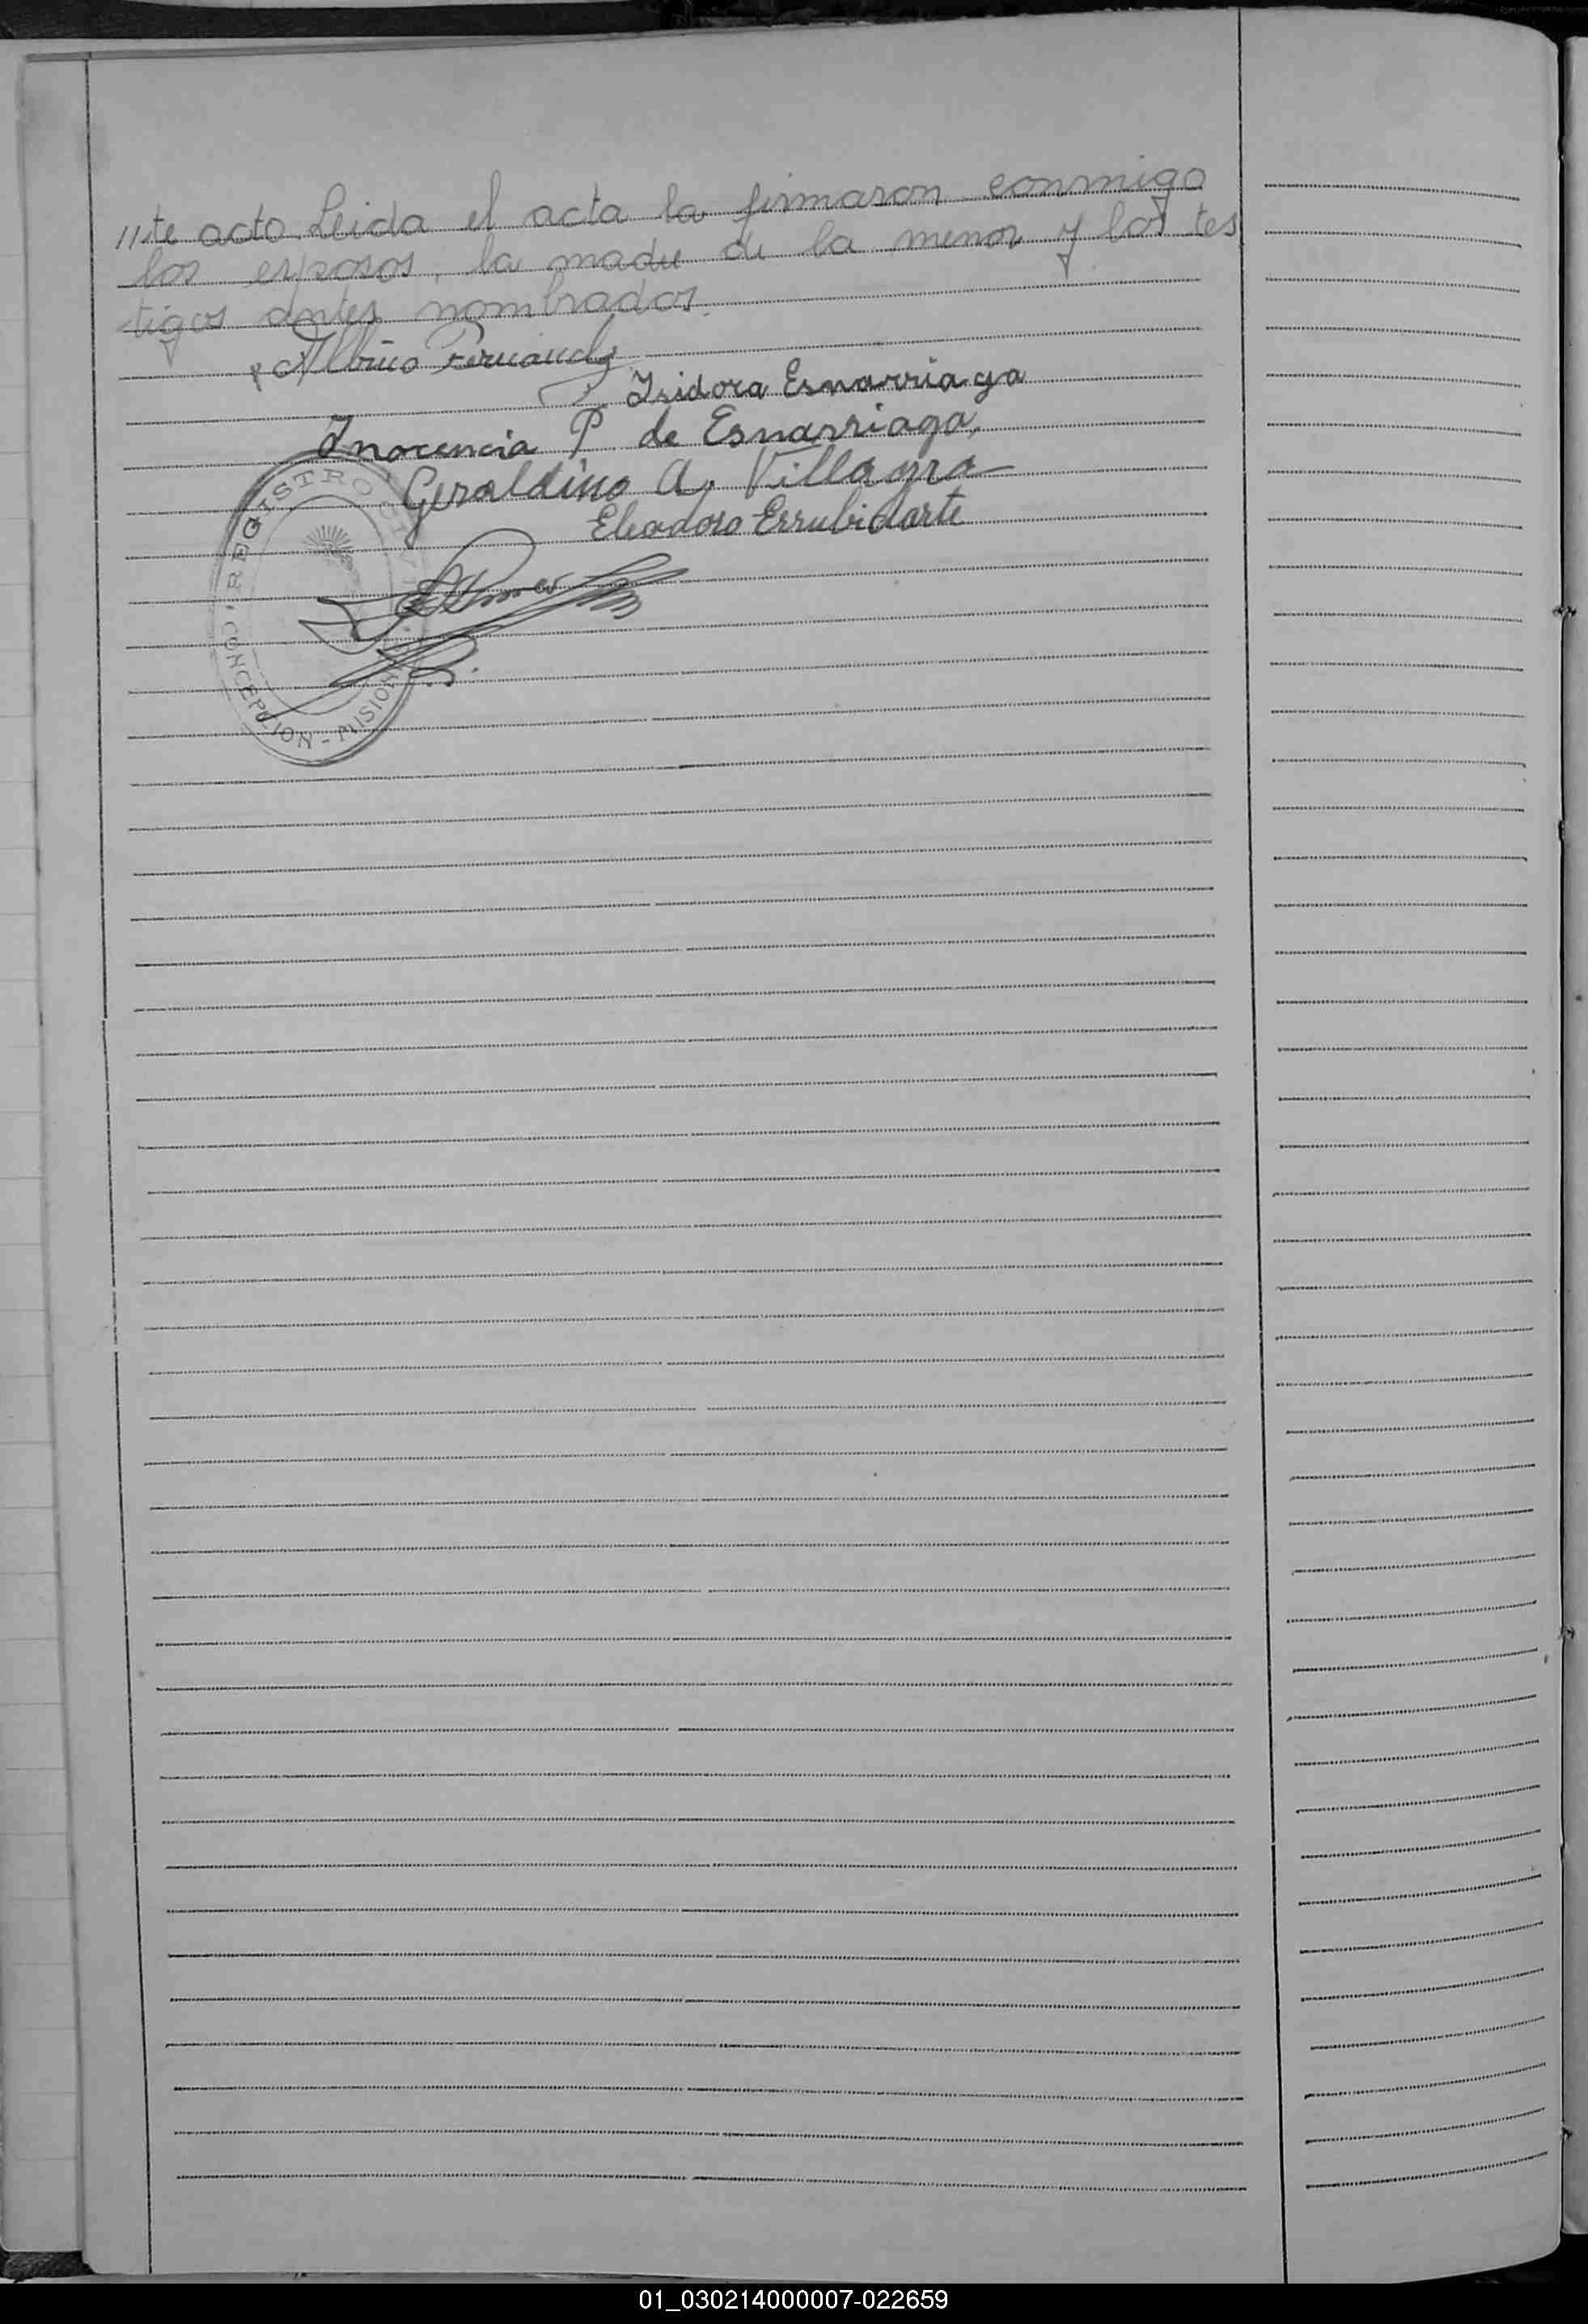 //te acto. Leida el acta la firmaron conmigo
los esposos, la madre de la menor y los tes
tigos antes nombrados.
Fernandez
Isidora Esnarriaga
Inocencia P. de Esnarriaga,
Geraldino A. Villagra
Eleodoro Errubidarte
REGISTRO CIVIL
CONCEPCION - MISIONES
01_030214000007-022659